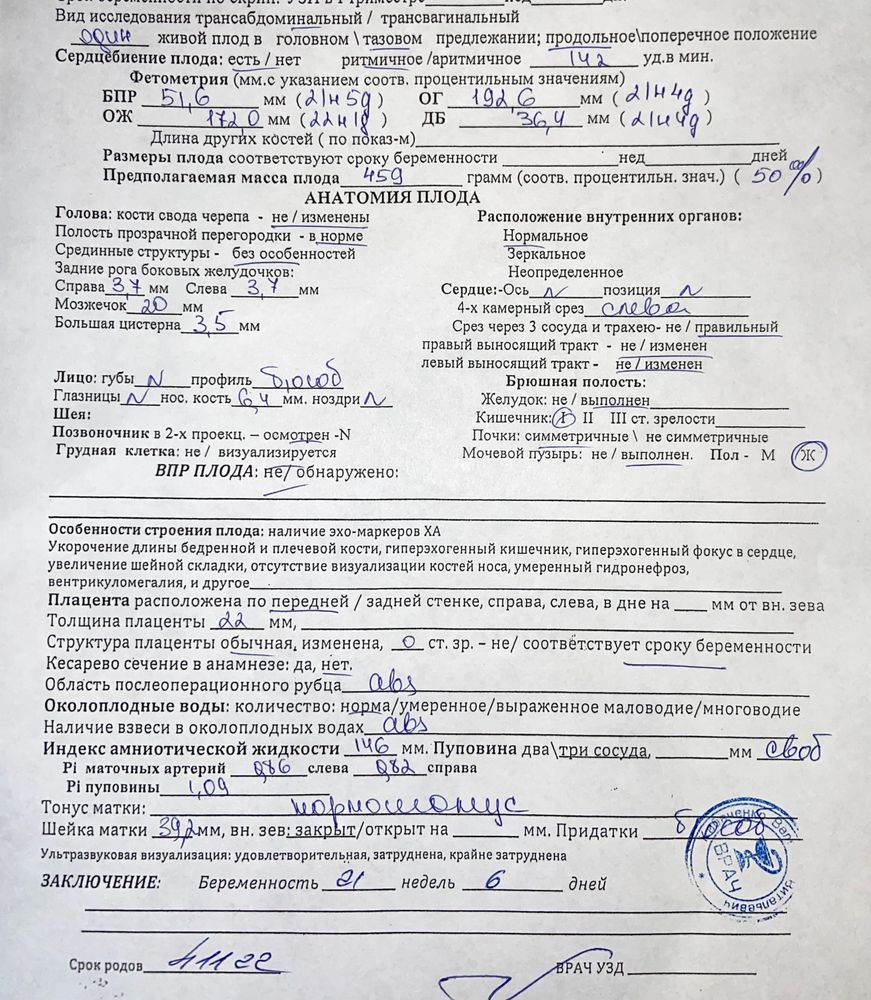 Вид исследования трансабдоминальный / трансвагинальный
один живой плод в головном \ тазовом предлежании; продольное\поперечное положение
Сердцебиение плода: есть / нет ритмичное /аритмичное 142 уд.в мин.
Фетометрия (мм.с указанием соотв. процентильным значениям)
БПР 51,6 мм (21н5д) ОГ 192,6 мм (21н4д)
ОЖ 172,0 мм (22н1д) ДБ 36,4 мм (21н4д)
Длина других костей ( по показ-м)
Размеры плода соответствуют сроку беременности нед дней
Предполагаемая масса плода 459 грамм (соотв. процентильн. знач.) ( 50% )
АНАТОМИЯ ПЛОДА
Голова: кости свода черепа - не / изменены
Полость прозрачной перегородки - в норме
Срединные структуры - без особенностей
Задние рога боковых желудочков:
Справа 3,7 мм Слева 3,7 мм
Мозжечок 20 мм
Большая цистерна 3,5 мм
Лицо: губы N профиль б/особ
Глазницы N нос. кость 6,4 мм. ноздри N
Шея:
Позвоночник в 2-х проекц. – осмотрен -N
Грудная клетка: не / визуализируется
Расположение внутренних органов:
Нормальное
Зеркальное
Неопределенное
Сердце:-Ось N позиция N
4-х камерный срез слева
Срез через 3 сосуда и трахею- не / правильный
правый выносящий тракт - не / изменен
левый выносящий тракт - не / изменен
Брюшная полость:
Желудок: не / выполнен
Кишечник: I II III ст. зрелости
Почки: симметричные \ не симметричные
Мочевой пузырь: не / выполнен. Пол - М Ж
ВПР ПЛОДА: не/ обнаружено:
Особенности строения плода: наличие эхо-маркеров ХА
Укорочение длины бедренной и плечевой кости, гиперэхогенный кишечник, гиперэхогенный фокус в сердце,
увеличение шейной складки, отсутствие визуализации костей носа, умеренный гидронефроз,
вентрикуломегалия, и другое
Плацента расположена по передней / задней стенке, справа, слева, в дне на мм от вн. зева
Толщина плаценты 22 мм,
Структура плаценты обычная, изменена, 0 ст. зр. – не/ соответствует сроку беременности
Кесарево сечение в анамнезе: да, нет.
Область послеоперационного рубца abs
Околоплодные воды: количество: норма/умеренное/выраженное маловодие/многоводие
Наличие взвеси в околоплодных водах abs
Индекс амниотической жидкости 146 мм. Пуповина два\три сосуда, мм своб
Pi маточных артерий 0,86 слева 0,82 справа
Pi пуповины 1,09
Тонус матки: нормотонус
Шейка матки 39,2 мм, вн. зев: закрыт/открыт на мм. Придатки б/особ
Ультразвуковая визуализация: удовлетворительная, затруднена, крайне затруднена
ЗАКЛЮЧЕНИЕ: Беременность 21 недель 6 дней
ВРАЧ
Витальевич
Срок родов 4 11 22 ВРАЧ УЗД